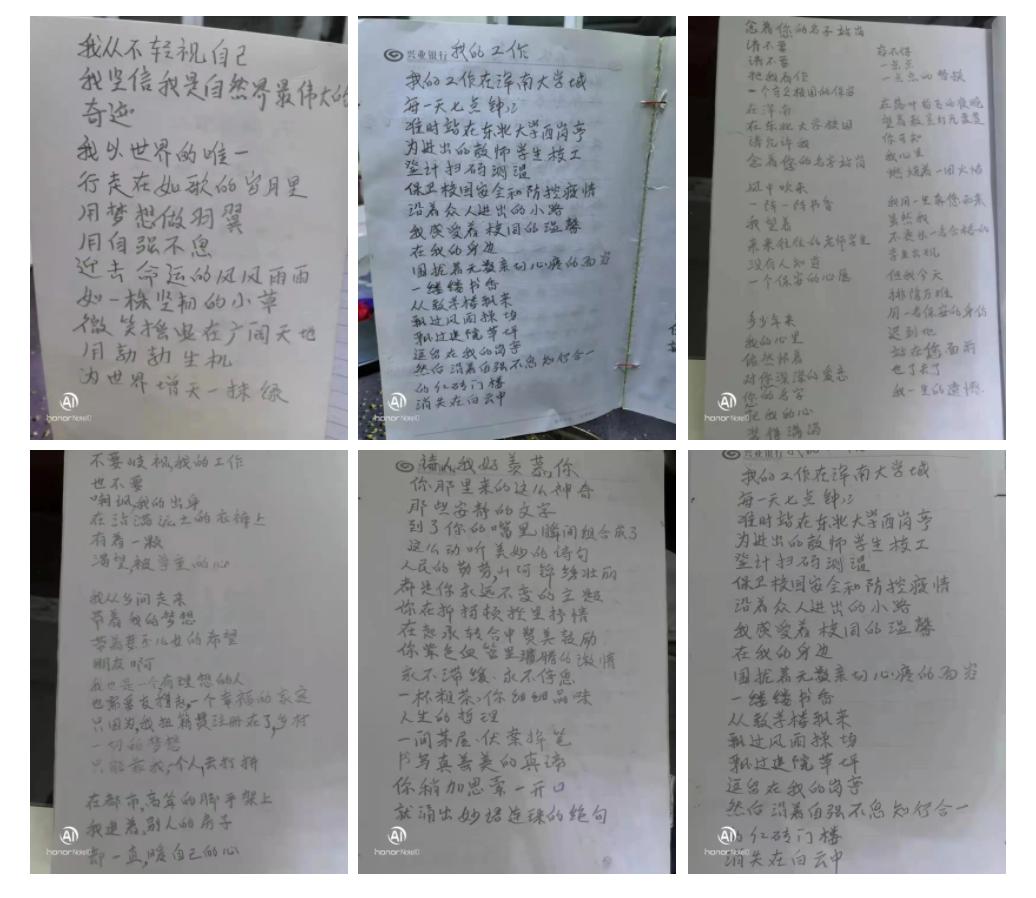 我从不轻视自己
我坚信我是自然界最伟大的
奇迹
我以世界的唯一
行走在如歌的岁月里
用梦想做羽翼
用自强不息
迎去命运的风风雨雨
如一株坚韧的小草
微笑摇曳在广阔天地
用勃勃生机
为世界增天一抹绿
AI
honor Note10
兴业银行 我的工作
我的工作在浑南大学城
每一天七点钟
准时站在东北大学西岗亭
为进出的教师学生校工
登计扫码测温
保卫校园安全和防控疫情
沿着众人进出的小路
我感受着校园的温馨
在我的身边
围拢着无数亲切心疼的面容
一缕缕书香
从教学楼飘来
飘过风雨操场
飘过庭院草坪
逗留在我的岗亭
然后沿着自强不息知行合一
的红砖门楼
消失在白云中
AI
honor Note10
念着你的名字站岗
请不要
请不要
把我看作
一个守卫校园的保安
在浑南
在东北大学校园
请允许我
念着你的名字站岗
风中吹来
一阵一阵书香
我望着
来来往往的老师学生
没有人知道
一个保安的心愿
多少年来
我的心里
依然怀着
对你深深的爱恋
你的名字
把我的心
装得满满
容不得
一点点
一点点的替换
在落叶纷飞的夜晚
望着教室灯光
你可知
我心里
燃烧着一团火焰
虽然我
但我今天
排除万难
用一名保安的身份
迟到地
站在您面前
也了却了
我一生的遗憾
AI
honor Note10
不要歧视,我的工作
也不要
嘲讽,我的出身
在沾满泥土的衣裤上
有着一颗
渴望,被尊重的心
我从乡间走来
带着我的梦想
带着妻子儿女的希望
朋友啊
我也是一个,有理想的人
也需要支撑起,一个幸福的家庭
只因为,我把籍贯注册在了,乡村
一切的梦想
只能靠我,个人,去打拼
在都市,高耸的脚手架上
我建着,别人的房子
却一直,暖自己的心
AI
honor Note10
诗人,我好羡慕,你
你那里来的这么神奇
那些安静的文字
到了你的嘴里,瞬间组合成了
这么动听美妙的诗句
人民的勤劳,山河锦绣壮丽
都是你永远不变的主题
你在抑扬顿挫里抒情
在起承转合中赞美鼓励
你紫色血管里灌腾的激情
永不滞缓、永不停息
一杯粗茶、你细细品味
人生的哲理
一间茅屋、伏案挥笔
书写真善美的真谛
你稍加思索一开口
就涌出妙语连珠的绝句
AI
honor Note10
兴业银行
我的工作在浑南大学城
每一天七点钟
准时站在东北大学西岗亭
为进出的教师学生校工
登计扫码测温
保卫校园安全和防控疫情
沿着众人进出的小路
我感受着校园的温馨
在我的身边
围拢着无数亲切心疼的面容
一缕缕书香
从教学楼飘来
飘过风雨操场
飘过庭院草坪
逗留在我的岗亭
然后沿着自强不息知行合一
的红砖门楼
消失在白云中
AI
honor Note10